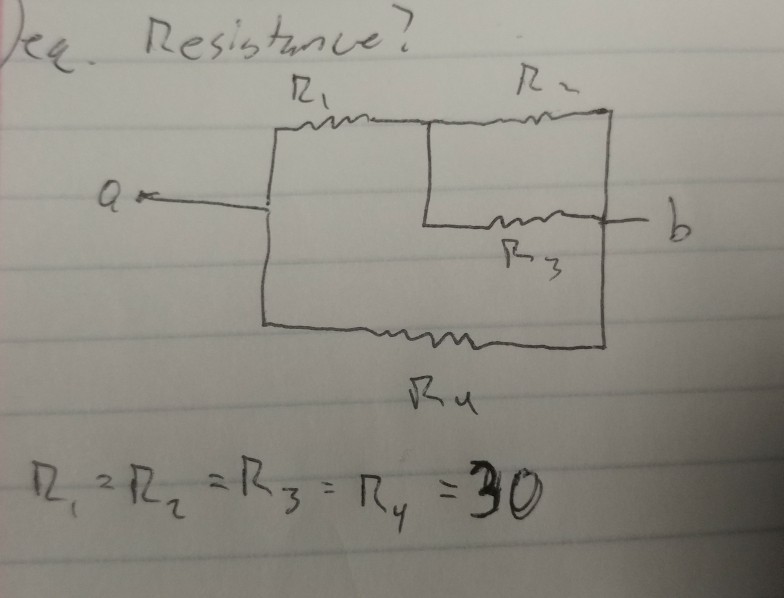 eq. Resistance?
R₁ R₂
a b
R₃
R₄
R₁ = R₂ = R₃ = R₄ = 30